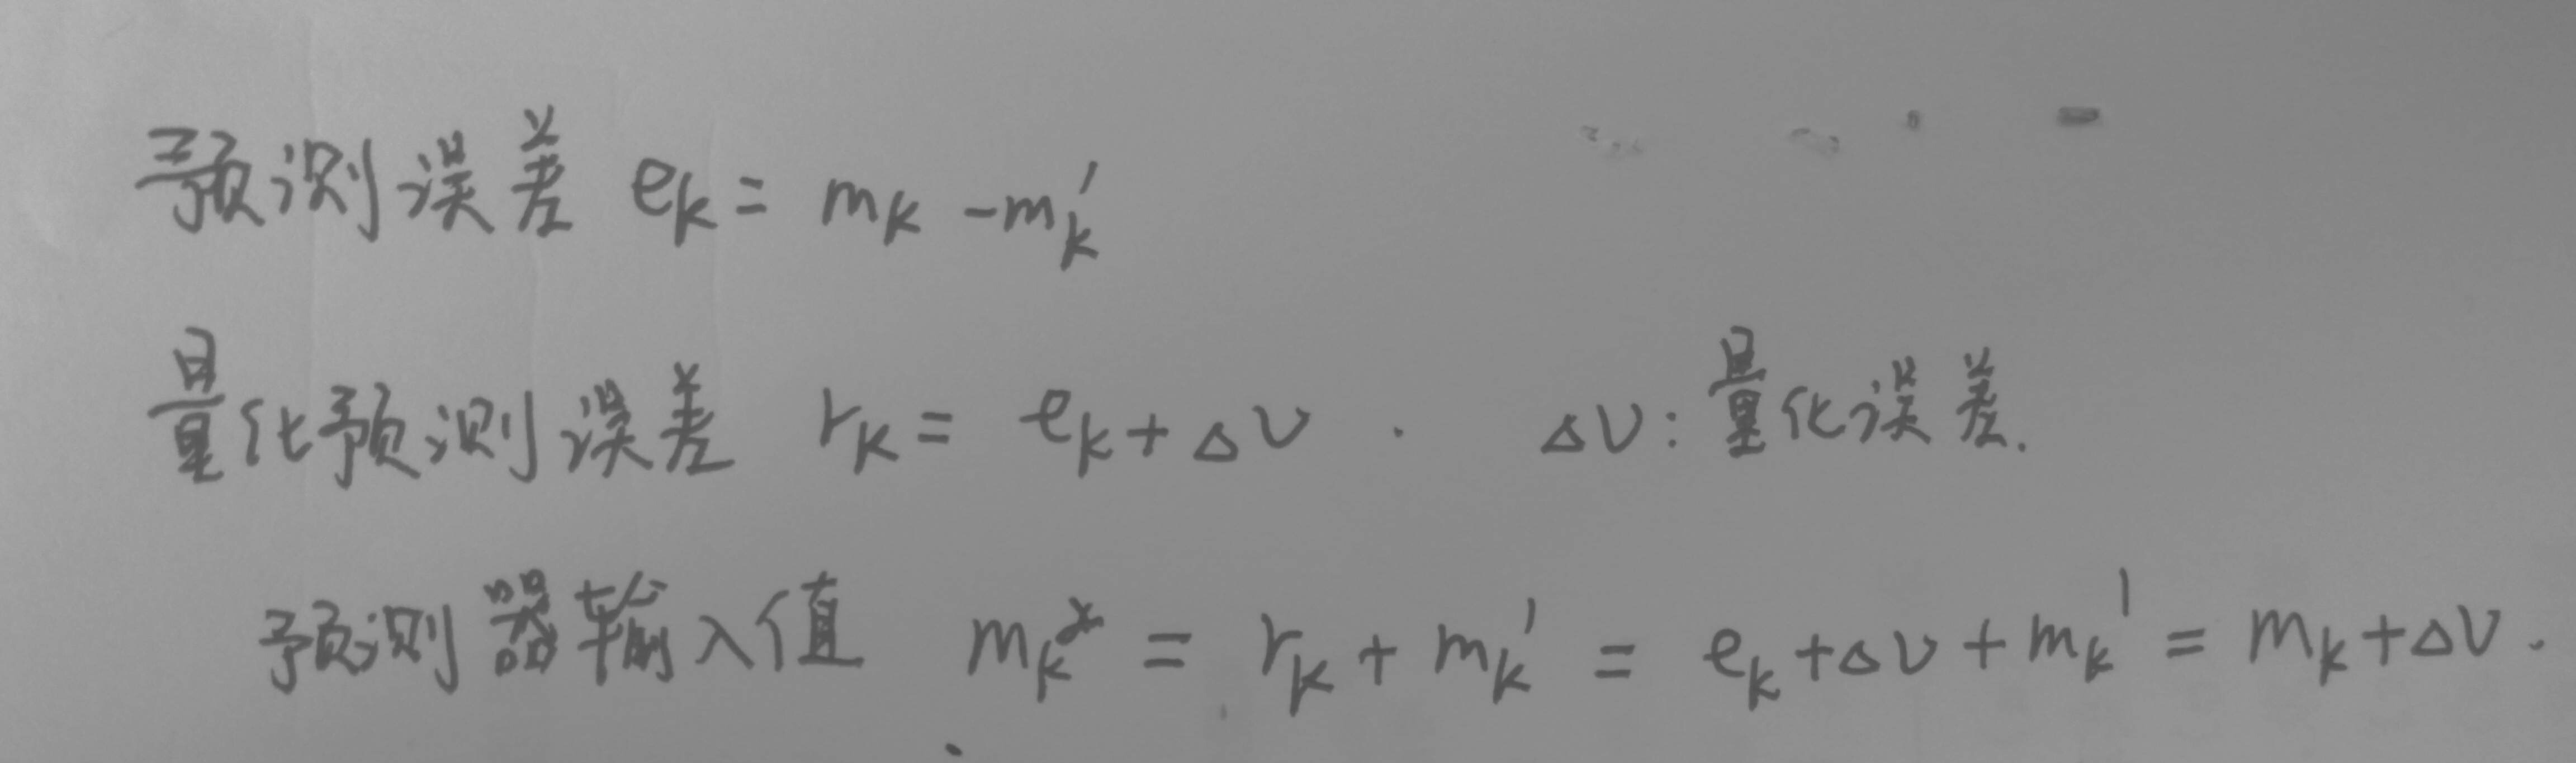 预测误差 eₖ = mₖ - mₖ′
量化预测误差 rₖ = eₖ + ΔV . ΔV: 量化误差.
预测器输入值 mₖ* = rₖ + mₖ′ = eₖ + ΔV + mₖ′ = mₖ + ΔV.